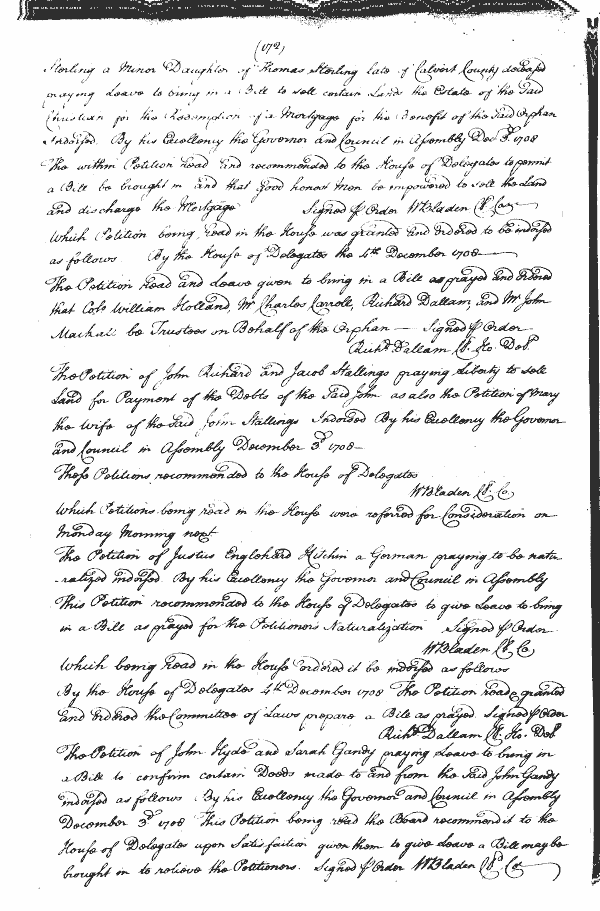 (172)
Sterling a Minor Daughter of Thomas Sterling late of Calvert County deceased
praying Leave to bring in a Bill to sell certain Lands the Estate of the said
Christian for the Redemption of a Mortgage for the Benefit of the said Orphan
Indorsed. By his Excellency the Governor and Council in Assembly Dec 3d. 1708
The within Petition read and recommended to the House of Delegates to permit
a Bill be brought in and that good honest men be impowered to sell the Land
and discharge the Mortgage Signed p Order WBladen Cl. Co
Which Petition being read in the House was granted and ordered to be indorsed
as follows By the House of Delegates the 4th December 1708
The Petition read and leave given to bring in a Bill as prayed and ordered
that Colo William Holland, Mr Charles Carroll, Richard Dallam, and Mr John
Mackall be Trustees on Behalf of the Orphan — Signed p Order
Richd Dallam Cl. Ho. Del.
The Petition of John Richard and Jacob Stallings praying liberty to sell
Land for Payment of the Debts of the said John as also the Petition of Mary
the Wife of the said John Stallings Indorsed By his Excellency the Governor
and Council in Assembly December 3d 1708
These Petitions recommended to the House of Delegates
WBladen Cl. Co
Which Petitions being read in the House were referred for Consideration on
Monday Morning next
The Petition of Justus Englehard Kitchin a German praying to be natu
ralized indorsed By his Excellency the Governor and Council in Assembly
This Petition recommended to the House of Delegates to give Leave to bring
in a Bill as prayed for the Petitioners Naturalization Signed p Order
WBladen Cl. Co
Which being read in the House ordered it be indorsed as follows
By the House of Delegates 4th December 1708 The Petition read & granted
and ordered the Committee of Laws prepare a Bill as prayed Signed p Order
Richd Dallam Cl. Ho. Del
The Petition of John Hyde and Sarah Gandy praying Leave to bring in
a Bill to confirm certain Deeds made to and from the said John Gandy
indorsed as follows By his Excellency the Governor and Council in Assembly
December 3d 1708 This Petition being read the Board recommend it to the
House of Delegates upon Satisfaction given them to give Leave a Bill may be
brought in to relieve the Petitioners. Signed p Order WBladen Cl Co